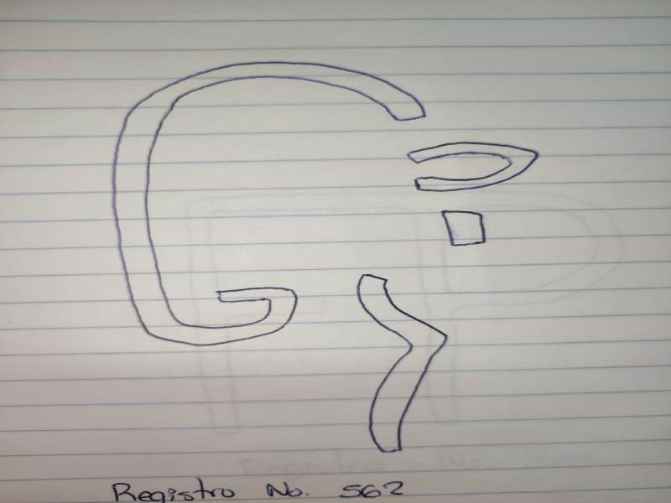 Registro No. 562